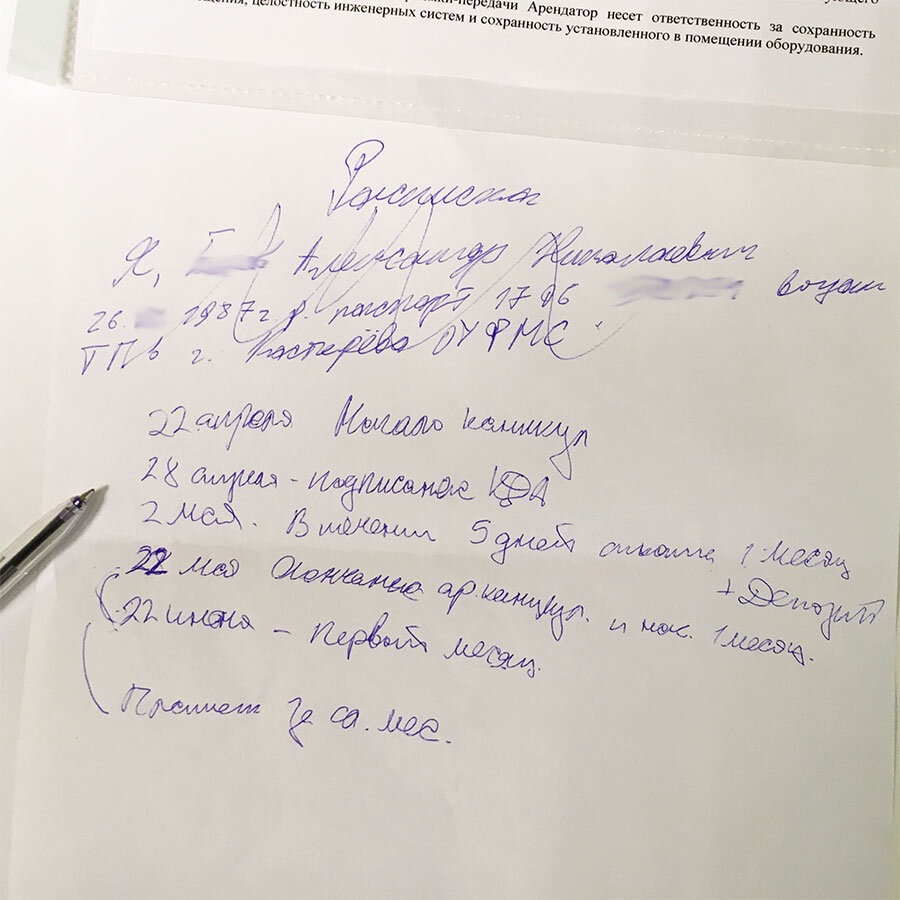 мки-передачи Арендатор несет ответственность за сохранность
щения, целостность инженерных систем и сохранность установленного в помещении оборудования.
Расписка
Я, Александр Николаевич
26. 1987 г. р. паспорт 17 06
ТП в г. ОУФМС
22 апреля Начало каникул
28 апреля - подписание КДА
2 мая. В течении 5 дней оплата 1 месяц
+ Депозит
22 мая Окончание ар. каникул. и нач. 1 месяца.
22 июня - Первый месяц.
за сл. мес.